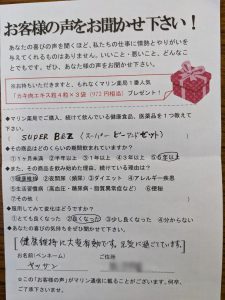 お客様の声をお聞かせ下さい！
あなたの喜びの声を聞くほど、私たちの仕事に情熱とやりがいを
与えてくれるものはありません。いいこと・悪いこと、どんなこ
とでもです。ぜひ、あなた様の声をお聞かせ下さい。
※お待ちいただきますと、もれなくマリン薬局１番人気
「カキ肉エキス粒４粒×３袋（972円相当）プレゼント！
◆マリン薬局でご購入、続けて飲んでいる健康食品、医薬品を１つ教え
て下さい。
SUPER BEZ（スーパー ビーアンドゼット）
◆その商品はどのくらいの期間飲まれていますか？
①１ヶ月未満 ②半年以上 ③１年以上 ④３年以上 ⑤５年以上
◆また、その商品を飲み始めた理由、続けている理由は？
①健康維持 ②夜間頻（頻尿）③ダイエット ④アレルギー疾患
⑤生活習慣病（高血圧・糖尿病・脂質異常症など） ⑥便秘
⑦その他（ ）
◆服用してみて変化はどうですか？
①とても良くなった ②良くなった ③少し良くなった ④分からない
◆あなたの喜びの気持ちをぜひ聞かせて下さい！
健康維持に大変有効です。元気に過ごしています。
お名前（ペンネーム） ご住所
ヤッサン
※この「お客様の声」がマリン通信に載ることがございます。何卒、
ご了承下さいませ。